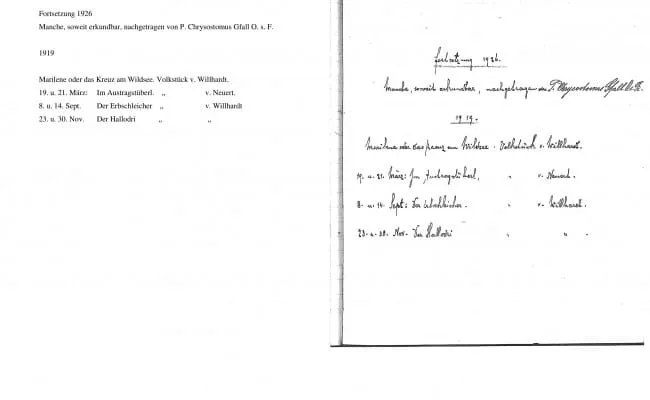 Fortsetzung 1926
Manche, soweit erkundbar, nachgetragen von P. Chrysostomus Gfall O. s. F.
1919
Marilene oder das Kreuz am Wildsee. Volkstück v. Willhardt.
19. u. 21. März: Im Austragstüberl. „ v. Neuert.
8. u. 14. Sept. Der Erbschleicher „ v. Willhardt
23. u. 30. Nov. Der Hallodri „ „
Fortsetzung 1926.
Manche, soweit erkundbar, nachgetragen von P. Chrysostomus Gfall O. s. F.
1919.
Marilene oder das Kreuz am Wildsee. Volkstück v. Willhardt.
19. u. 21. März: Im Austragstüberl. „ v. Neuert.
8. u. 14. Sept: Der Erbschleicher. „ v. Willhardt.
23. u. 30. Nov. Der Hallodri „ „ .